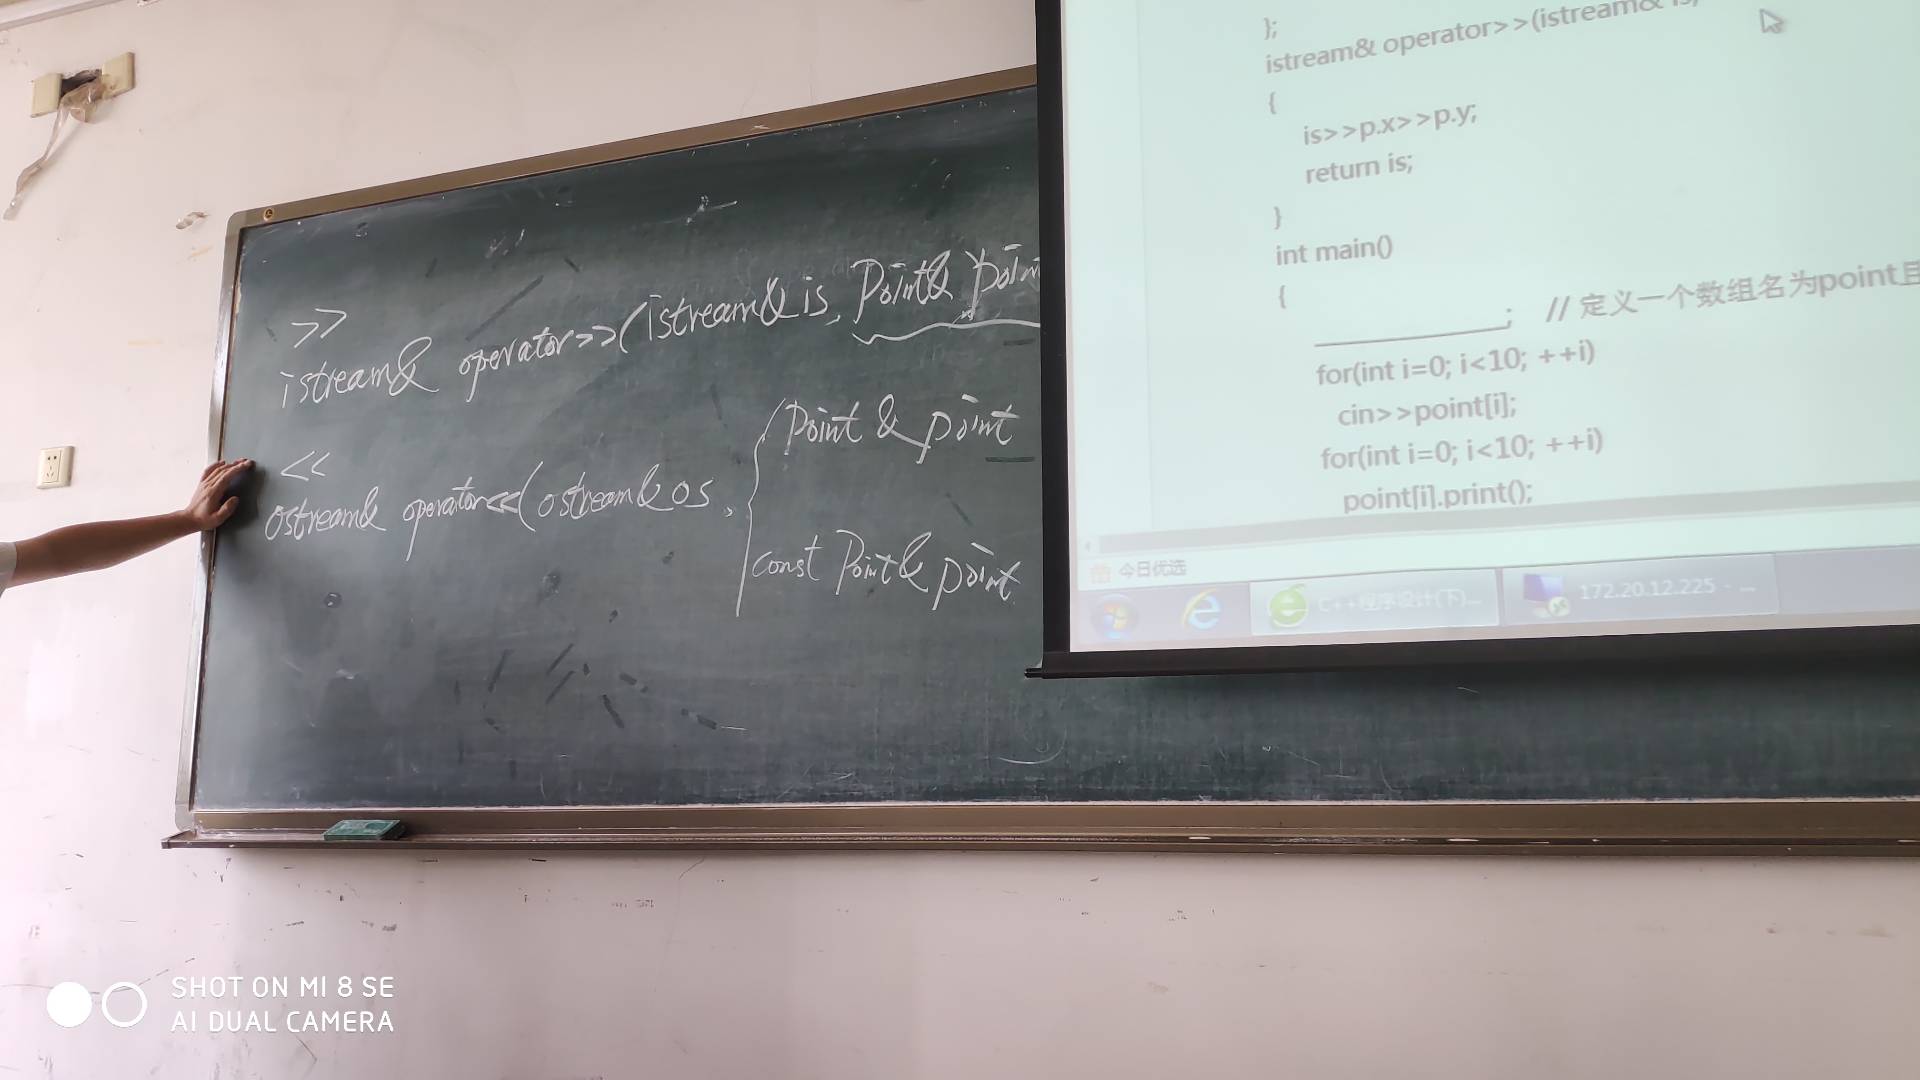 >>
istream& operator>>(istream& is, Point& poin
<<
ostream& operator<<(ostream& os,
Point & point
const Point & point
};
istream& operator>>(istream& is,
{
is>>p.x>>p.y;
return is;
}
int main()
{
____________; // 定义一个数组名为point且
for(int i=0; i<10; ++i)
cin>>point[i];
for(int i=0; i<10; ++i)
point[i].print();
今日优选
C++程序设计(下)...
172.20.12.225 - ...
SHOT ON MI 8 SE
AI DUAL CAMERA